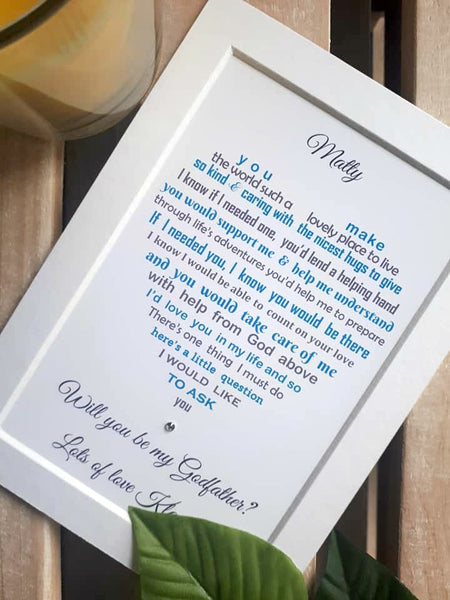 Matty
you make
the world such a lovely place to live
so kind & caring with the nicest hugs to give
I know if I needed one, you'd lend a helping hand
you would support me & help me understand
through life's adventures you'd help me to prepare
If I needed you, I know you would be there
I know I would be able to count on your love
and you would take care of me
with help from God above
I'd love you in my life and so
There's one thing I must do
here's a little question
I WOULD LIKE
TO ASK
you
Will you be my Godfather?
Lots of love